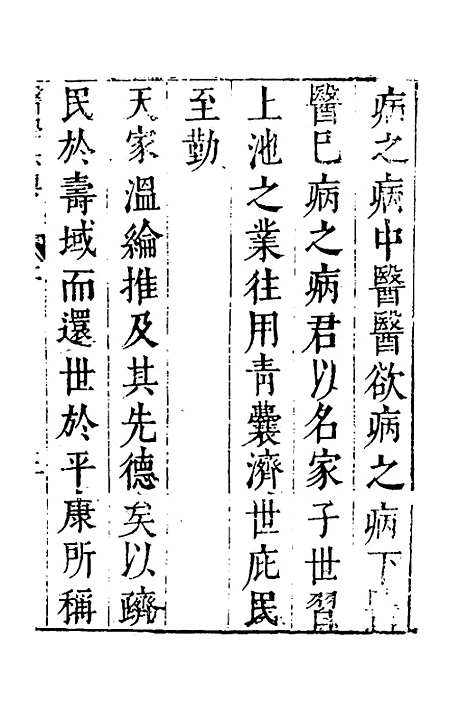 病之病中醫醫欲病之病下醫
醫已病之病君以名家子世習
上池之業往用青囊濟世庇民
至勤
天家溫綸推及其先德矣以躋
民於壽域而還世於平康所稱